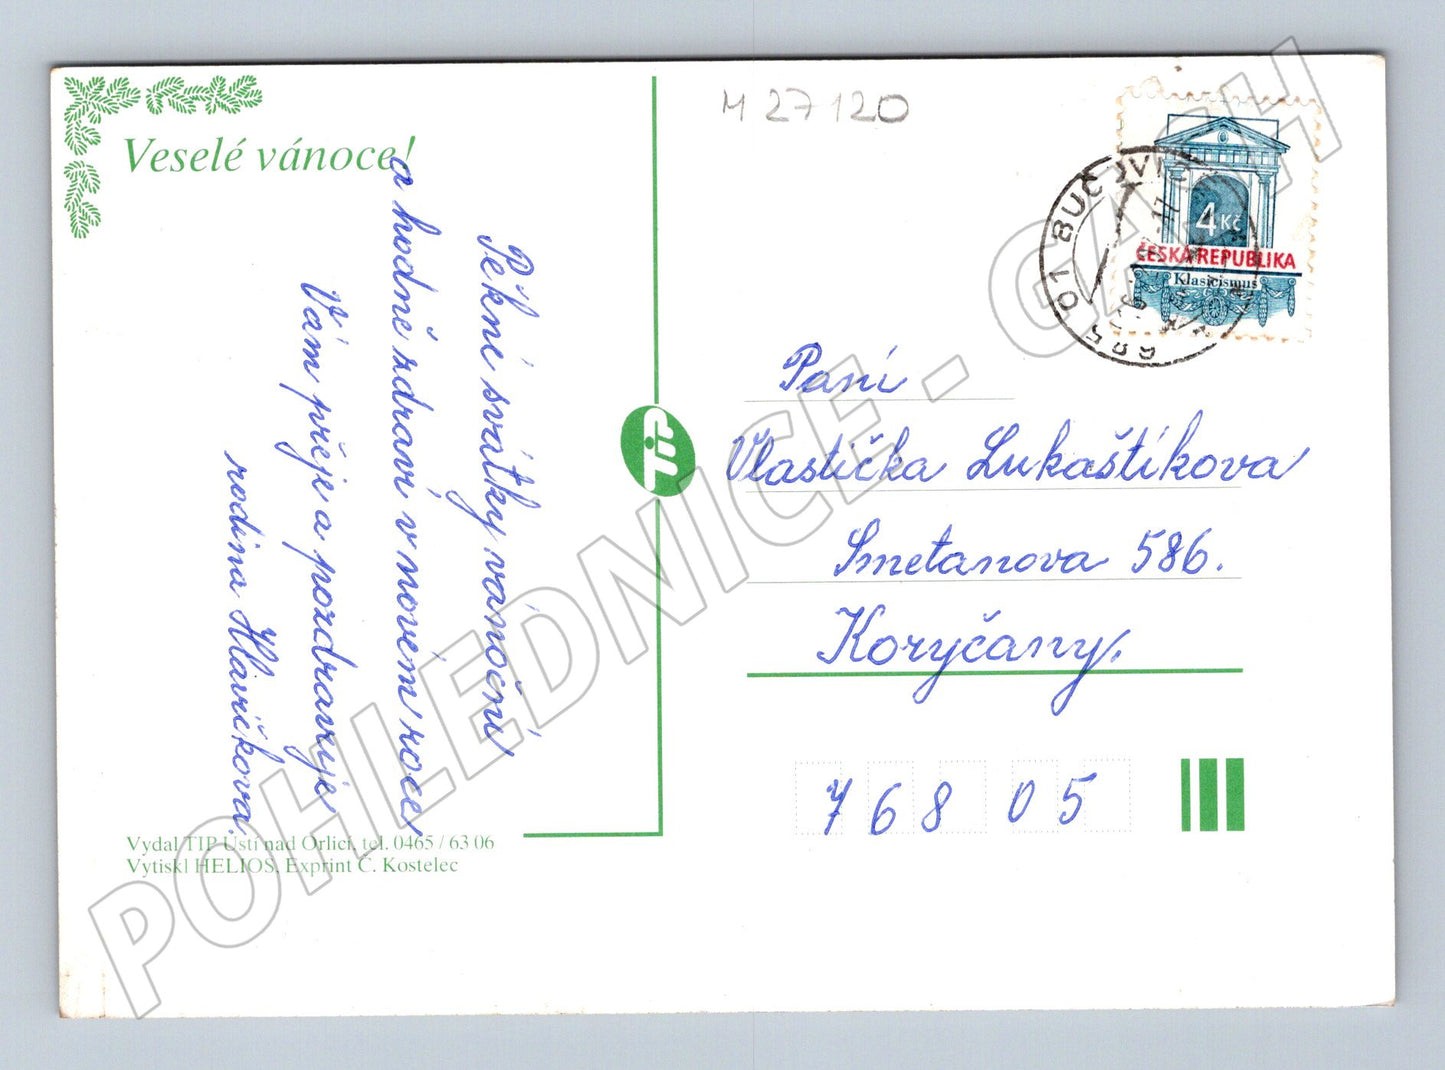 Veselé vánoce!
Pěkné svátky vánoční
a hodně zdraví v novém roce
Vám přeje a pozdravuje
rodina Hlavičkova.
Vydal TIP Ústí nad Orlicí, tel. 0465 / 63 06
Vytiskl HELIOS, Exprint Č. Kostelec
TIP
M 27120
4 Kč
ČESKÁ REPUBLIKA
Klasicismus
685 01 BUČOVICE
Paní
Vlastička Lukaštíkova
Smetanova 586.
Koryčany.
768 05
POHLEDNICE - GASH